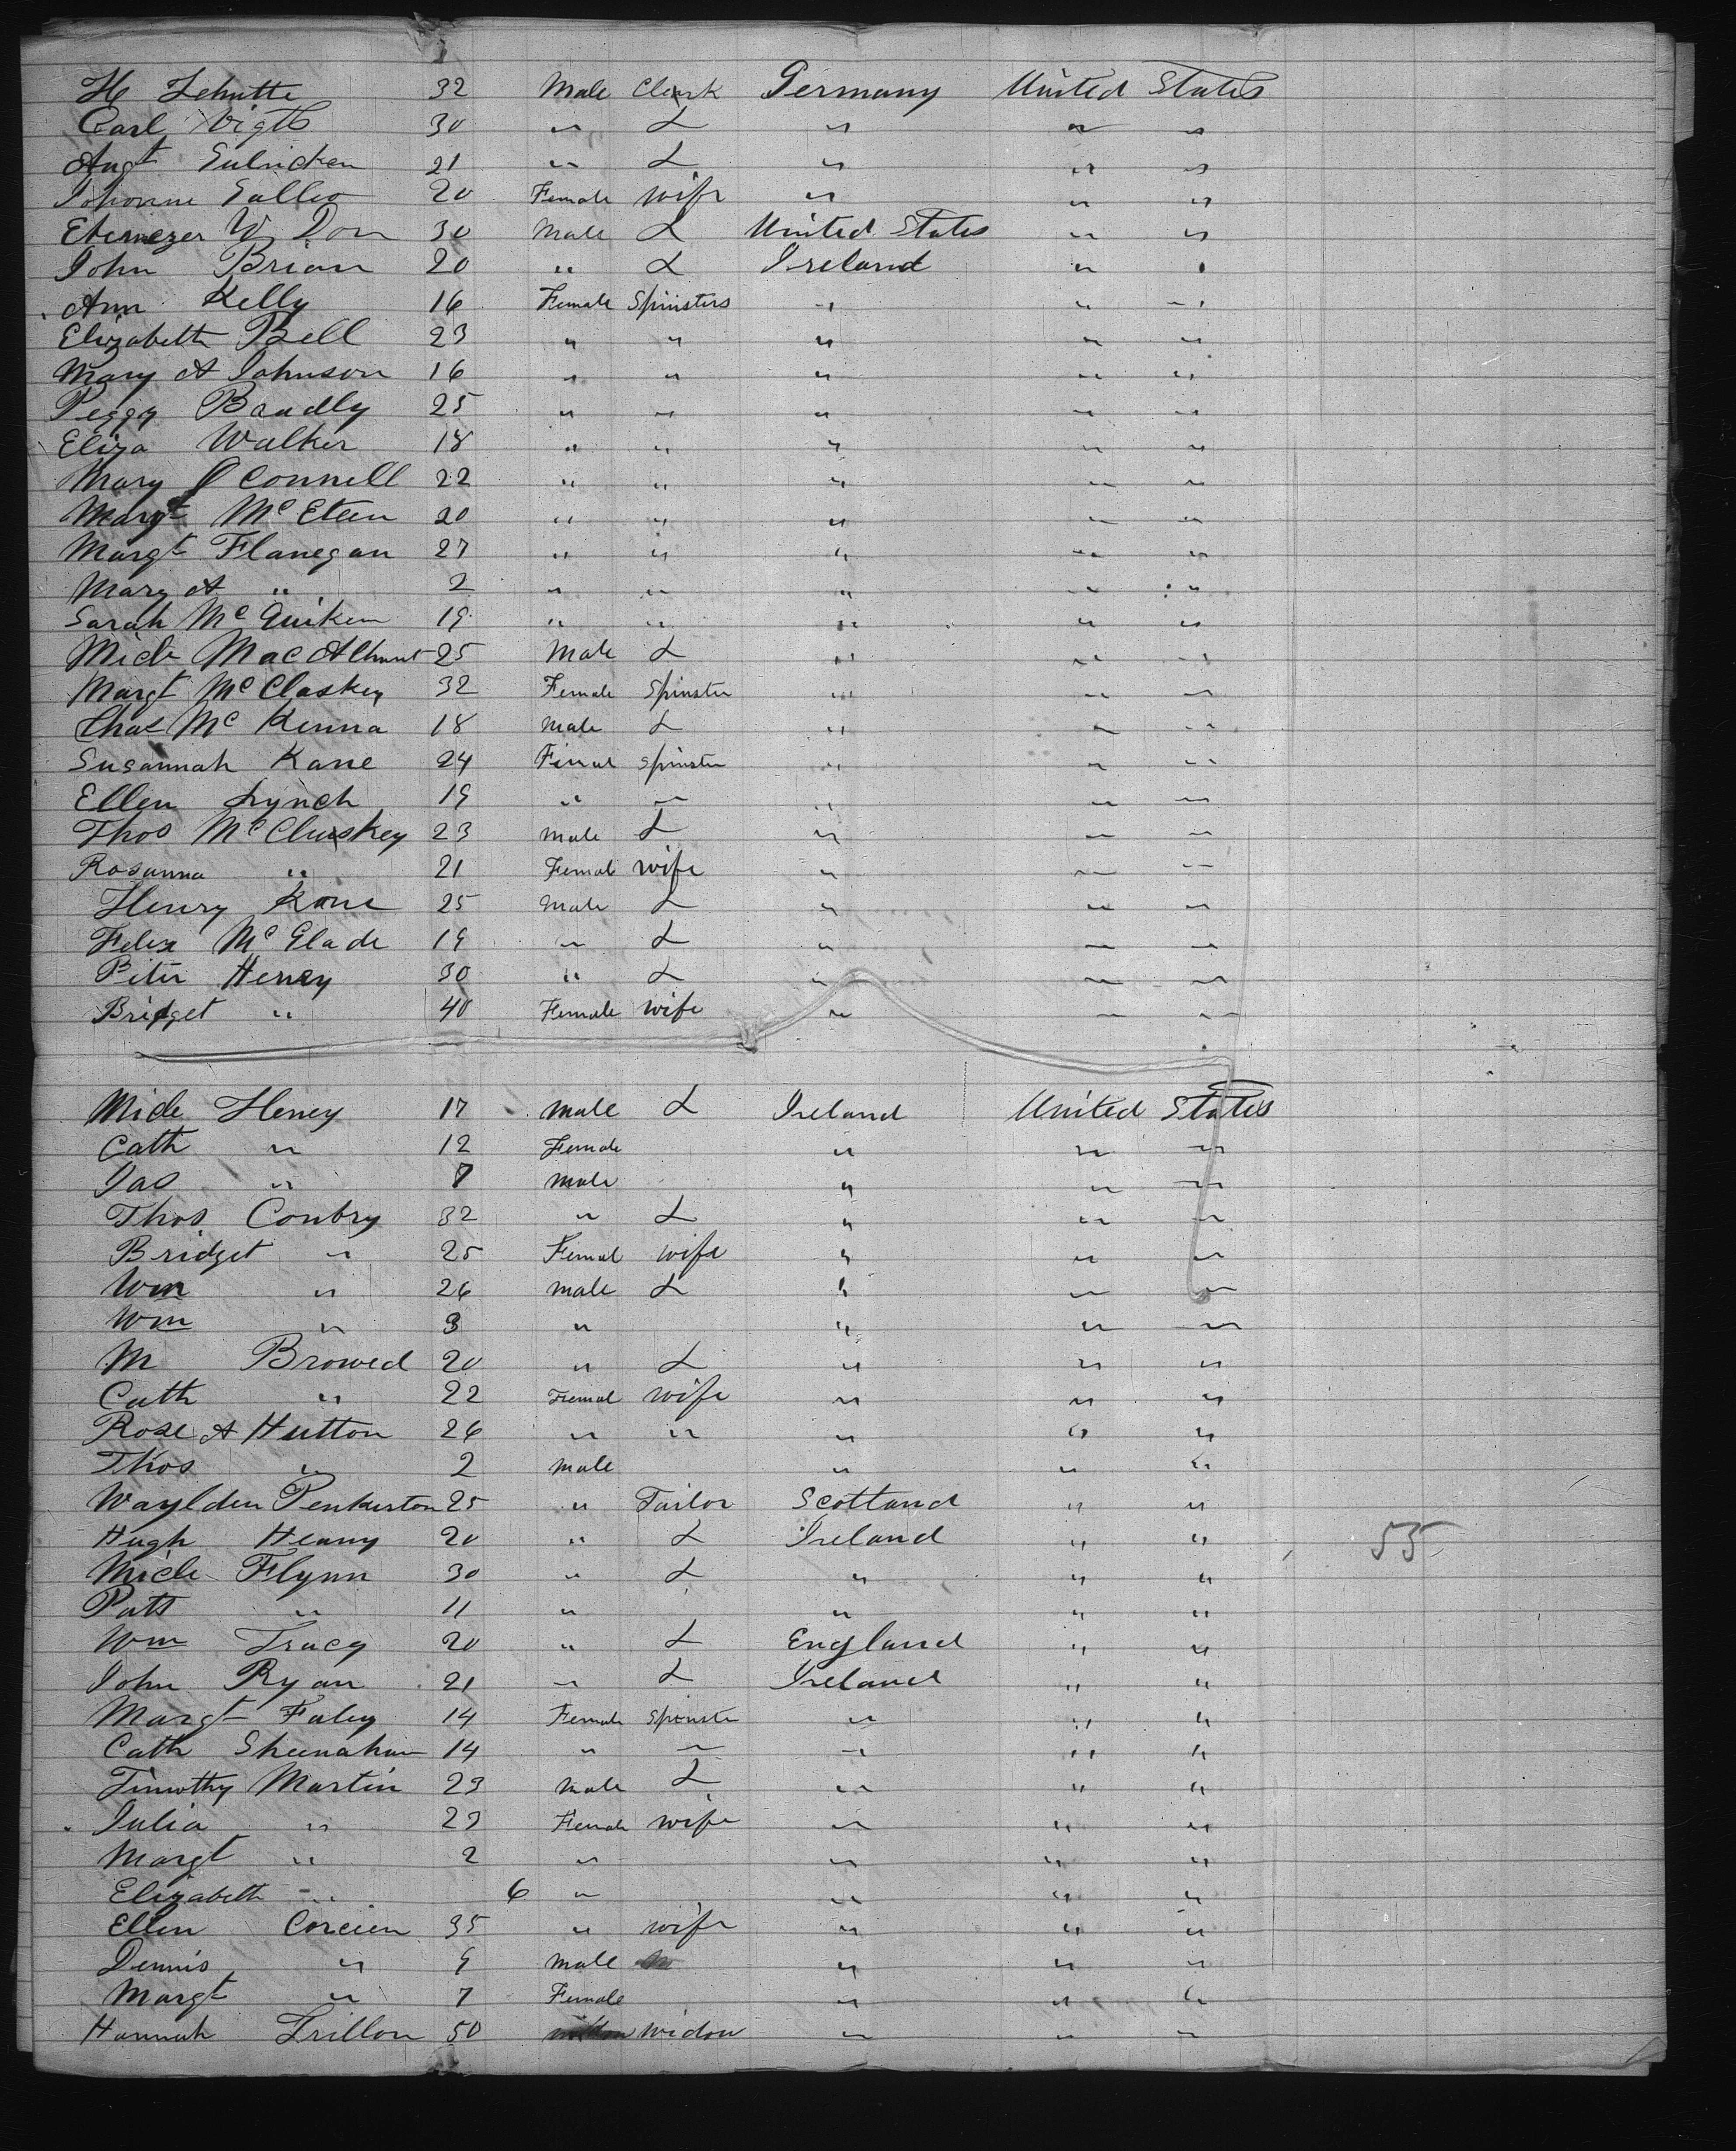 H Schutte 32 Male Clerk Germany United States
Carl Vigts 30 " L " " "
Augt Eulricken 21 " L " " "
Johonne Salleo 20 Female wife " " "
Ebernezer W Don 30 Male L United States " "
John Brian 20 " L Ireland " "
Ann Kelly 16 Female Spinsters " " "
Elizabeth Bell 23 " " " " "
Mary A Johnson 16 " " " " "
Peggy Bandly 25 " " " " "
Eliza Walker 18 " " " " "
Mary O Connell 22 " " " " "
Margt Mc Eteen 20 " " " " "
Margt Flanegan 27 " " " " "
Mary A " 2 " " " " "
Sarah Mc Quiken 19 " " " " "
Mich Mac 25 Male L " " "
Margt Mc Claskey 32 Female Spinster " " "
Chas Mc Kenna 18 Male L " " "
Susannah Kane 24 Femal Spinster " " "
Ellen Lynch 19 " " " " "
Thos Mc Cluskey 23 Male L " " "
Rosanna " 21 Femal wife " " "
Henry Kane 25 Male L " " "
Felix Mc Glade 19 " L " " "
Peter Heney 30 " L " " "
Bridget " 40 Female wife " " "
Mich Heney 17 male L Ireland United States
Cath " 12 Female " " "
Jas " 7 male " " "
Thos Conbry 32 " L " " "
Bridget " 25 Femal wife " " "
Wm " 26 male L " " "
Wm " 3 " " " "
M Browed 20 " L " " "
Cath " 22 Femal wife " " "
Rose A Hutton 26 " " " " "
Thos " 2 male " " "
Waylden Penkerton 25 " Tailor Scotland " "
Hugh Heany 20 " L Ireland " " 55
Mich Flynn 30 " L " " "
Patt " 11 " " " "
Wm Tracy 20 " L England " "
John Ryan 21 " L Ireland " "
Margt Faley 14 Female Spinster " " "
Cath Sheenahan 14 " " " " "
Timothy Martin 23 Male L " " "
Julia " 23 Female wife " " "
Margt " 2 " " " "
Elizabeth " 6 " " " "
Ellen Corcien 35 " wife " " "
Dennis " 9 male " " "
Margt " 7 Female " " "
Hannah Trillon 50 widow " " "